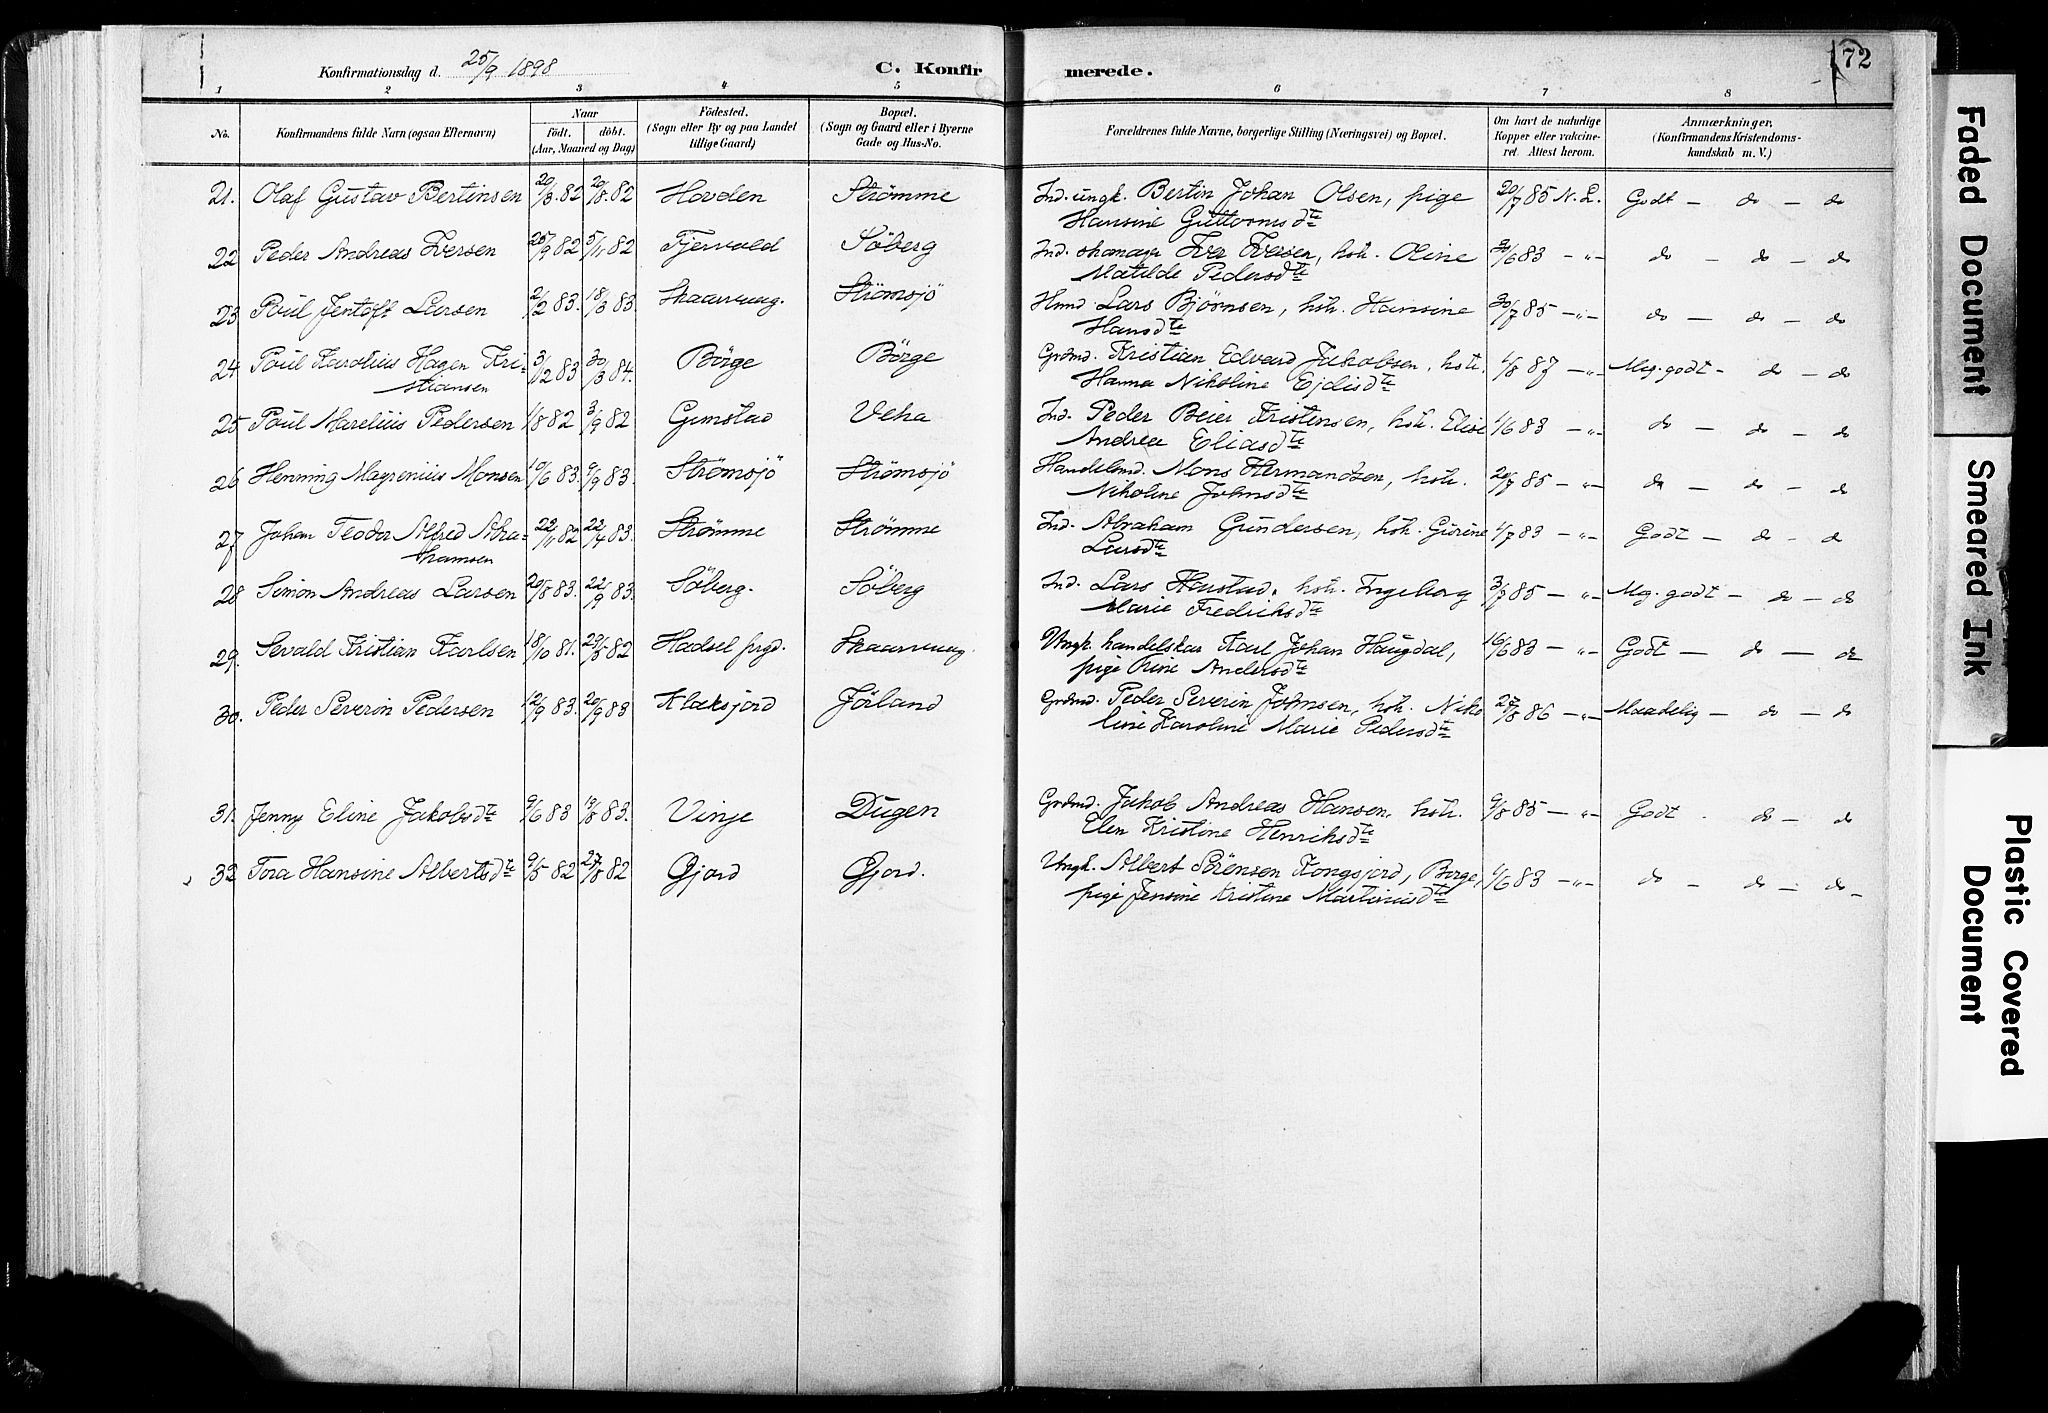 Konfirmationsdag d. 25/9 1898 C. Konfirmerede. 72
1 2 3 4 5 6 7 8
No. Konfirmandens fulde Navn (ogsaa Efternavn) Naar Födt. döbt. (Aar, Maaned og Dag) Födested. (Sogn eller By og paa Landet tillige Gaard) Bopæl. (Sogn og Gaard eller i Byerne Gade og Hus-No. Forældrenes fulde Navne, borgerlige Stilling (Næringsvei) og Bopæl. Om havt de naturlige Kopper eller vakcineret. Attest herom. Anmærkninger, (Konfirmandens Kristendomskundskab m. V.)
21. Olaf Gustav Bertinsen 20/3 82 20/8 82 Hovden Strømme Ind. ungk. Bertin Johan Olsen, pige 20/7 85 N. L. Godt — do — do
Hansine Guttormsdte
22 Peder Andreas Iversen 25/9 82 5/11 82 Tjervold Söberg Ind. Iver Iversen, hstr. Oline 30/6 83 — " — do — do — do
Matilde Pedersdte
23 Poul Jentoft Larsen 2/2 83. 18/3 83. Skaarvaag. Strömsjö Hmd. Lars Bjørnsen, hstr. Hansine 30/7 85 — " — do — do — do
Hansdte
24 Poul Karolius Hagen Kri- 3/12 83 30/3 84. Börge Börge Grdmd. Kristian Edvard Jakobsen, hstr. 1/8 87 — " — Meg. godt — do — do
stiansen Hanna Nikoline Ejdisdte
25 Poul Marelius Pedersen 1/8 82 3/9 82 Gimstad Veha Ind. Peder Beier Kristensen, hstr. Elise 1/6 83 — " — do — do — do
Andrea Eliasdte
26 Henning Magrenius Monsen 10/6 83. 9/9 83. Strömsjö Strömsjö Handelsmd. Mons Hermandsen, hstr. 20/7 85 — " — do — do — do
Nikoline Johnsdte
27 Johan Teodor Alfred Abra- 22/11 82 22/4 83. Strömme Strömme Ind. Abraham Gundersen, hstr. Gurine 1/7 83 — " — Godt — do — do
hamsen Larsdte
28 Simon Andreas Larsen 20/8 83. 22/9 83. Söberg. Söberg Ind. Lars Haustad, hstr. Ingeborg 3/7 85 — " — Meg. godt — do — do
Marie Fredriksdte
29. Sevald Kristian Karlsen 18/10 81. 29/5 82 Hadsel prgd. Skaarvaag. Ungk. handelskar Karl Johan Haugdal, 16/6 83 — " — Godt — do — do
pige Andersdte
30. Peder Severin Pedersen 12/9 83. 20/9 83 Klaksjord Jörland Grdmd. Peder Severin Johnsen, hstr. Niko 27/8 86 — " — Maadelig — do — do
line Karoline Marie Pedersdte
31. Jenny Eline Jakobsdte 9/6 83 19/8 83. Vinje Dugen Grdmd. Jakob Andreas Hansen, hstr. 9/8 85 — " — Godt. do — do
Elen Kristine Henriksdte
32 Tora Hansine Albertsdte 9/5 82 27/8 82 Gjord Gjord. Ungk. Albert Sörensen Kongsjord, Borge, 1/6 83 — " — do — do — do —
pige Jensine Kristine Martiniusdte
Faded Document
Smeared Ink
Plastic Covered
Document